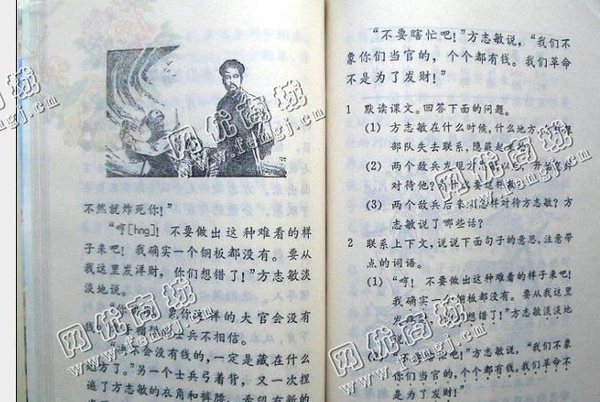 不然就炸死你!”
“哼[hng]! 不要做出这种难看的样
子来吧! 我确实一个铜板都没有。要从
我这里发洋财, 你们想错了!”方志敏淡
淡地说。
象你这样的大官会没有
士兵不相信。
不会没有钱的, 一定是藏在什么
地方了。”另一个士兵弓着背, 又一次捏
遍了方志敏的衣角和裤腰, 希望有新的
“不要瞎忙吧!”方志敏说, “我们不
象你们当官的, 个个都有钱。我们革命
不是为了发财!”
1 默读课文。回答下面的问题。
(1) 方志敏在什么时候, 什么地方
部队失去联系, 隐蔽起来
(2) 两个敌兵发现方志敏以
对待他? 为什么要这样做
(3) 两个敌兵后来怎样对待方志敏? 方
志敏说了哪些话?
2 联系上下文, 说说下面句子的意思, 注意带
点的词语。
(1) “哼! 不要做出这种难看的样子来吧!
我确实一个铜板都没有。要从我这里
发洋财, 你们想错了!”方志敏淡淡地
说。
(2) “不要瞎忙吧!”方志敏说, “我们不象
你们当官的, 个个都有钱。我们革命不
是为了发财!”
网优商城
www.fengj.com.cn